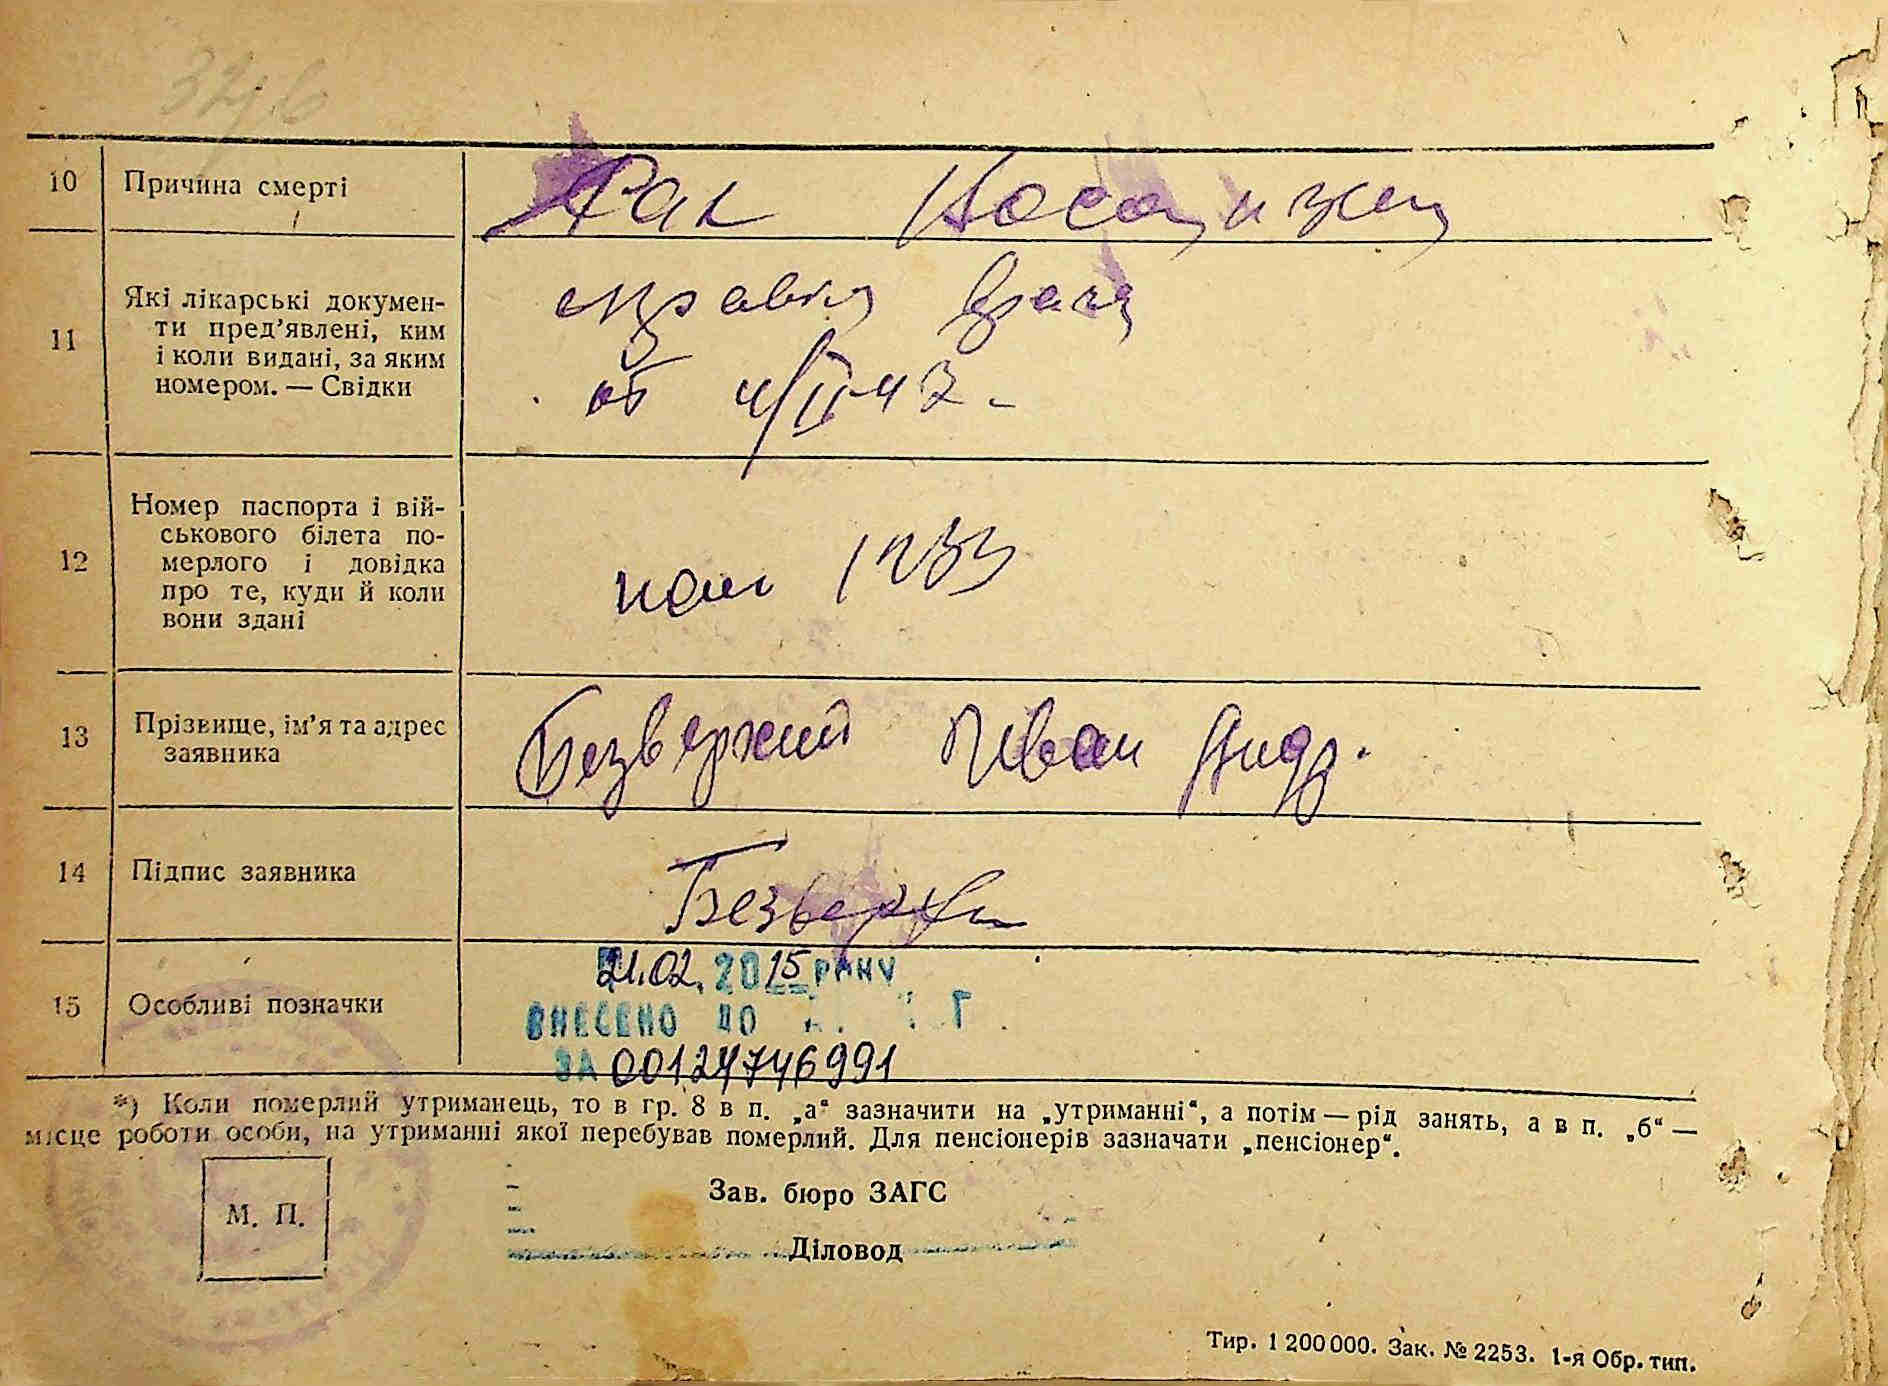 10 Причина смерті Рак
11 Які лікарські докумен-
ти пред’явлені, ким
і коли видані, за яким
номером. — Свідки
справка врача
от 4/II-42 -
12 Номер паспорта і вій-
ськового білета по-
мерлого і довідка
про те, куди й коли
вони здані
13 Прізвище, ім’я та адрес
заявника
Безверхий Иван
14 Підпис заявника
15 Особливі позначки
21.02.2015 року
ВНЕСЕНО ДО
ЗА 00124746991
*) Коли померлий утриманець, то в гр. 8 в п. „а“ зазначити на „утриманні“, а потім — рід занять, а в п. „б“ —
місце роботи особи, на утриманні якої перебував померлий. Для пенсіонерів зазначати „пенсіонер“.
М. П.
Зав. бюро ЗАГС
Діловод
Тир. 1 200 000. Зак. № 2253. 1-я Обр. тип.